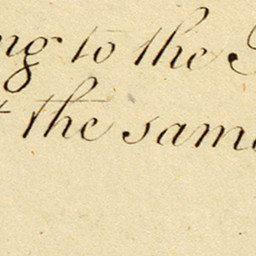 ng to the
the same